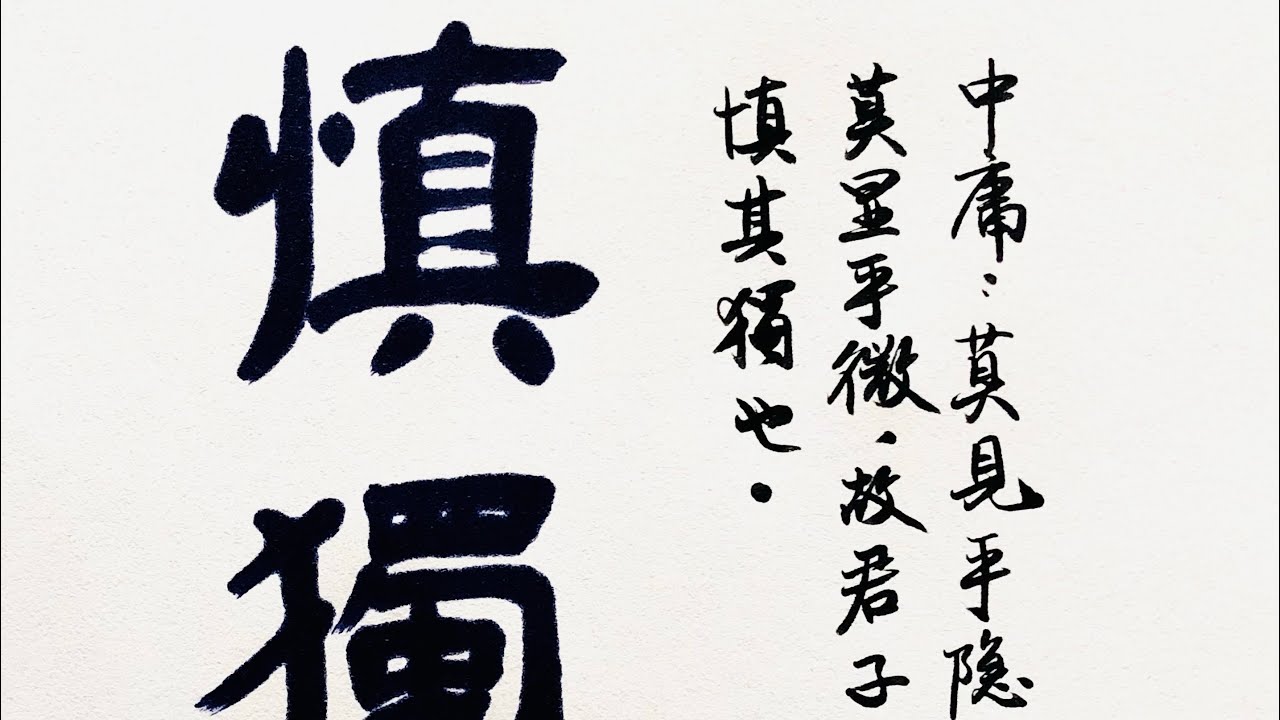 中庸：莫見乎隐
莫显乎微、故君子
慎其獨也。
慎獨